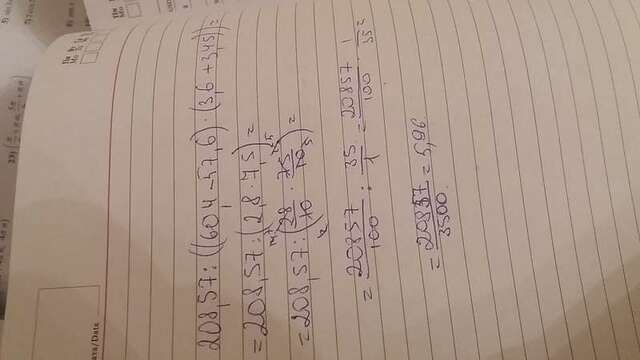 Data/Data
208,57:((60,4-57,6)·(3,6+3,45))=
=208,57:(2,8·7,5)=
=208,57:(28/10·75/10)=
=20857/100:35/1=20857/100·1/35=
=20857/3500=5,96